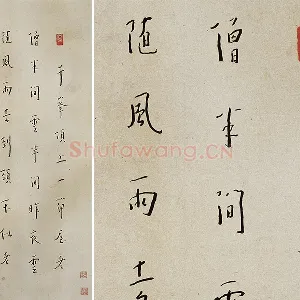 千峯頂上一間屋老
僧半間雲半間昨夜雲
随風雨去到頭不似老
僧半間
随風雨去
Shufawang.CN